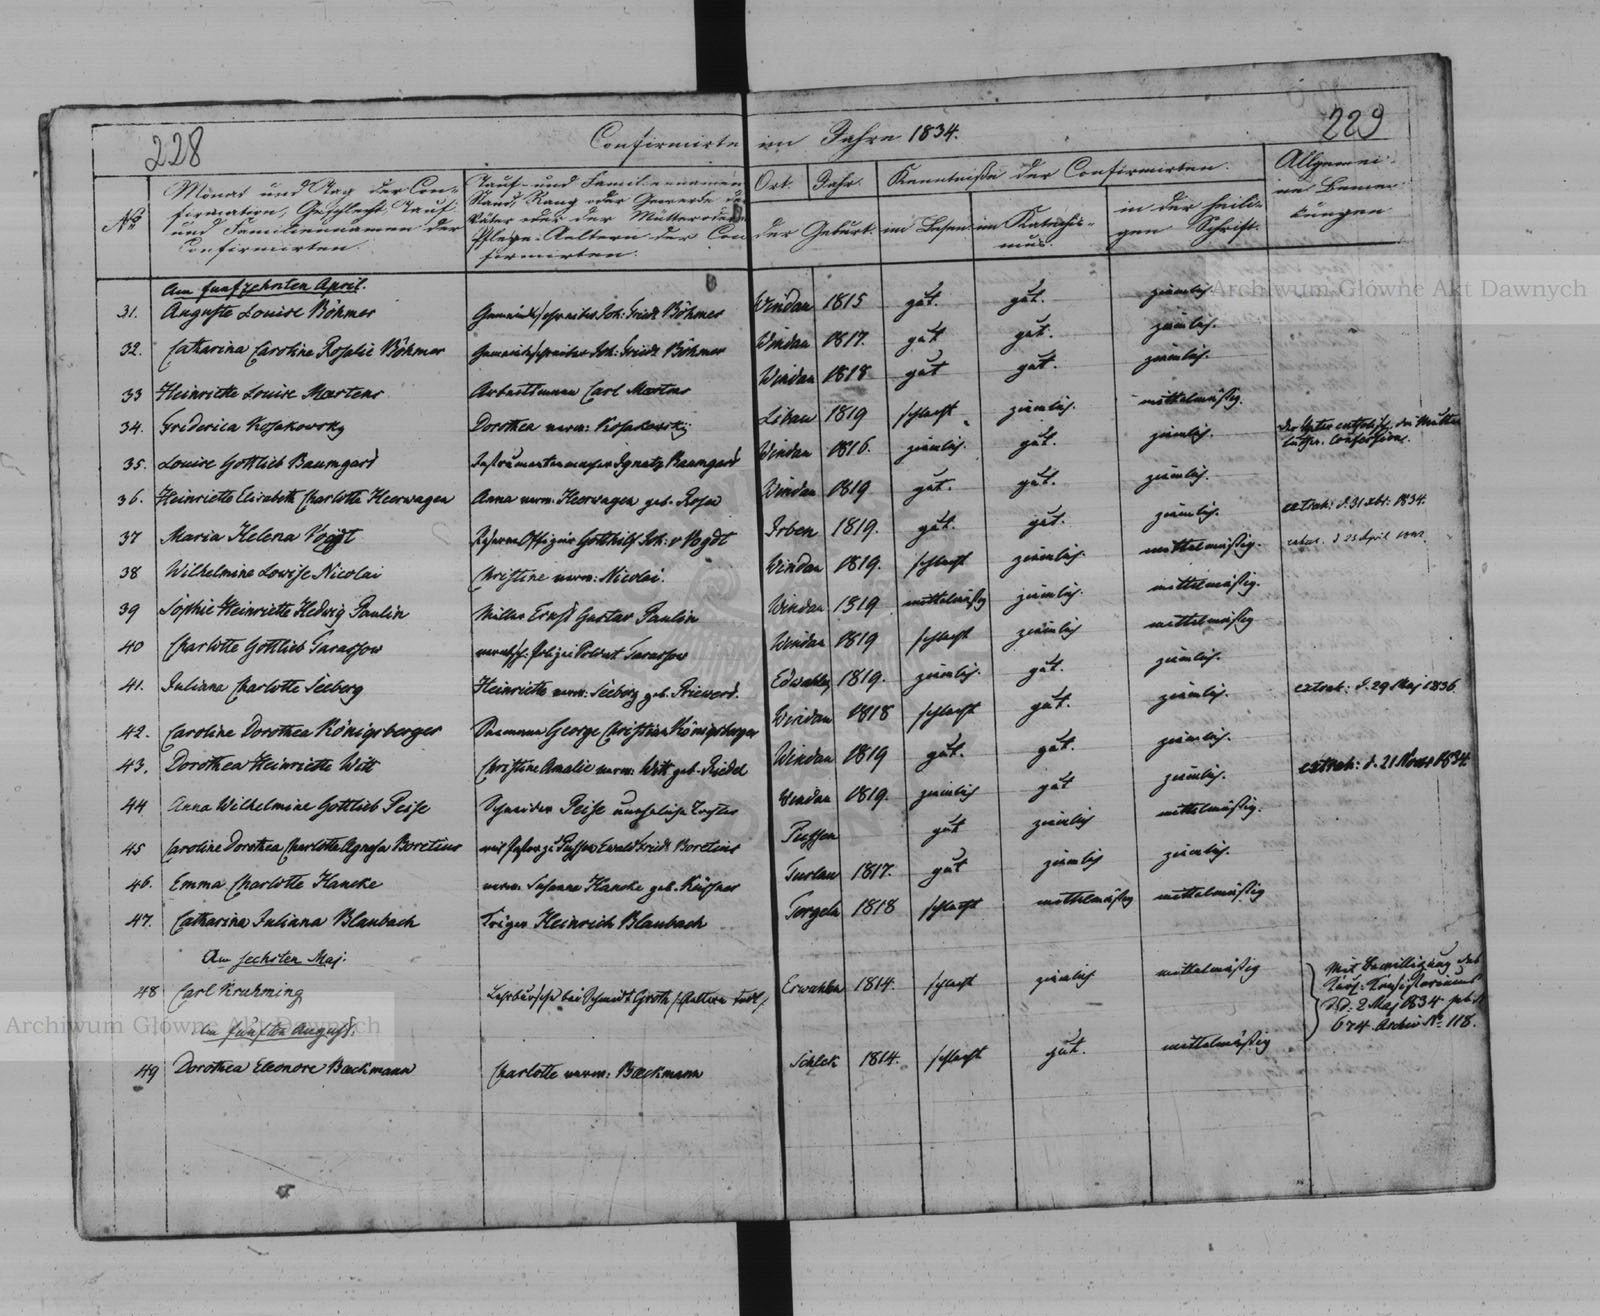 228
Confirmirte im Jahre 1834.
229
No
Monat und Tag der Con-
firmation, Geschlecht, Tauf-
und Familiennamen der
Confirmirten.
Tauf- und Familiennamen
Stand, Rang oder Gewerbe der
Väter oder der Mütter oder
Pflege-Aeltern der Con
firmirten.
Ort. Jahr.
der Geburt.
Kenntniße der Confirmirten.
im Lesen im Katechis-
mus
in der heili-
gen Schrift.
Allgemei-
ne Bemer-
kungen
Am funfzehnten April.
31. Auguste Louise Böhmer Gemeindschreiber Joh: Friedr Böhmer Windau 1815 gut. gut. ziemlich.
32. Catharina Caroline Rosalie Böhmer Gemeindschreiber Joh: Friedr Böhmer Windau 1817. gut gut. ziemlich.
33 Heinriette Louise Martens Arbeitsmann Carl Martens Windau 1818 gut gut. ziemlich.
34. Friderica Kosakowsky Dorothea verw: Kosakowsky Libau 1819 schlecht ziemlich. mittelmäßig.
35. Louise Gottlieb Baumgard Instrumentenmacher Ignatz Baumgard Windau 1816. ziemlich. gut. ziemlich. Der Vater catholisch, die Mutter
luther. Confession.
36. Heinriette Elisabeth Charlotte Heerwagen Anna verw: Heerwagen geb. Windau 1819 gut. gut. ziemlich.
37 Maria Helena Vogdt Offizier Gotthilf Joh: v Vogdt Irben 1819. gut. gut. ziemlich. extrah: d. 31 1834.
38 Wilhelmine Lowise Nicolai Christine verw: Nicolai. Windau 1819. schlecht ziemlich. mittelmäßig. d 23 April
39 Sophie Heinriette Hedwig Paulin Müller Ernst Gustav Paulin Windau 1819 mittelmäßig ziemlich. mittelmäßig.
40 Charlotte Gottlieb Tarassow Tarassow Windau 1819 schlecht ziemlich mittelmäßig
41. Juliana Charlotte Seeberg Heinriette verw. Seeberg geb. Edwahlen 1819. ziemlich. gut. ziemlich.
42. Caroline Dorothea Königsberger George Christian Königsberger Windau 1818 schlecht gut. ziemlich. extrah: d. 29 Maj 1836.
43. Dorothea Heinriette Witt Christine Amalie verw: Witt geb. Riedel Windau 1819 gut. gut. ziemlich.
44 Anna Wilhelmine Gottlieb Peise Schneider Peise uneheliche Tochter Windau 1819. ziemlich gut ziemlich. extrah: d. 21 1834.
45 Caroline Dorothea Charlotte Boretius Pussen Ewald Friedr Boretius Pussen gut ziemlich mittelmäßig.
46. Emma Charlotte Hancke verw. Susanna Hancke geb. Küssner 1817. gut ziemlich ziemlich.
47. Catharina Juliana Blaubach Heinrich Blaubach Torgeln 1818 schlecht mittelmäßig mittelmäßig
Am sechsten Maj.
48 Carl Kruhming Lehrbursche bei Schmidt Groth /:Aeltern todt:/ Erwahlen 1814. schlecht ziemlich mittelmäßig Mit Bewilligung des
Kurl: Consistoriums
d.d: 2 Maj 1834 sub N
674. Archiv No. 118.
Am funften August.
49 Dorothea Eleonore Baeckmann Charlotte verw: Baeckmann Schleck 1814. schlecht gut. mittelmäßig
Archiwum Główne Akt Dawnych
Archiwum Główne Akt Dawnych